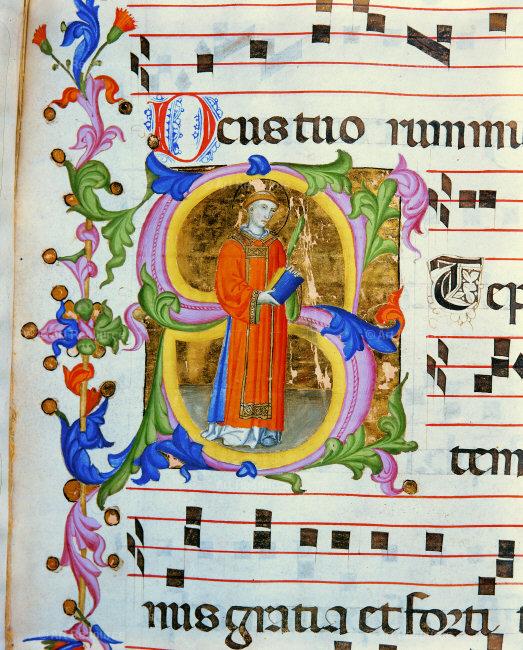 Deus tuo rum mi
S Tep
tem
nus gratia et forti